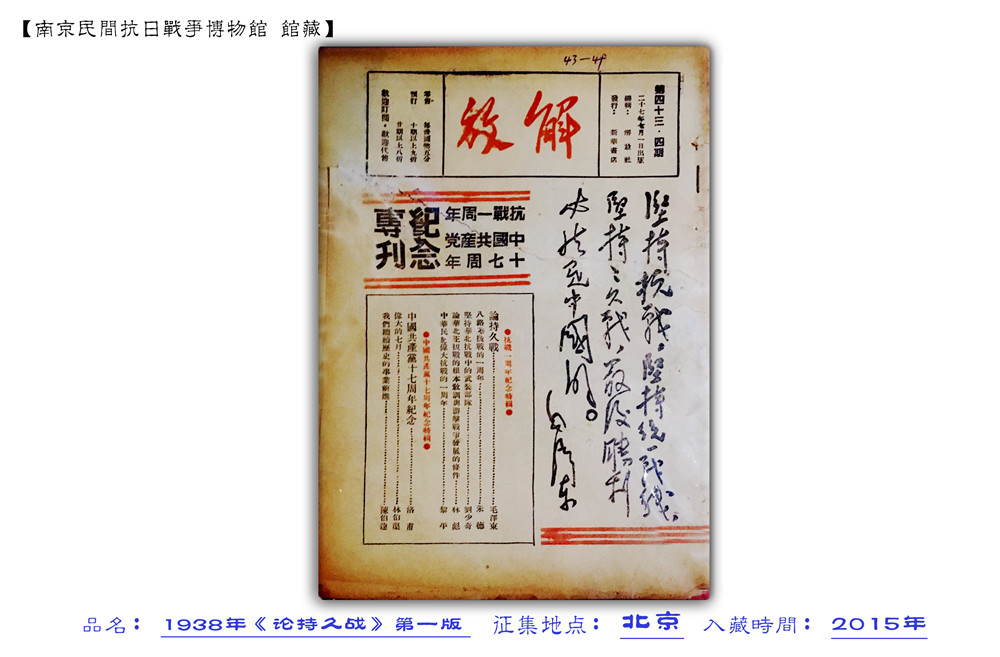 【南京民間抗日戰爭博物館 館藏】
第四十三·四期
二十七年七月一日出版
編輯：解放社
發行：新華書店
解放
零售 每冊國幣五分
預訂 十期以上九折
廿期以上八折
歡迎訂閱·歡迎代售
堅持抗戰，堅持統一战綫，
堅持〻久戰，最後勝利
必然是中國的。毛澤東
抗戰一周年
中國共産党
十七周年
紀念
專刊
●抗戰一周年紀念特輯●
論持久戰……毛澤東
八路軍抗戰的一周年……朱德
堅持華北抗戰中的武裝部隊……劉少奇
論華北正規戰的根本教訓與游擊戰爭發展的條件……林彪
中華民族偉大抗戰的一周年……黎平
●中國共產黨十七周年紀念特輯●
中國共產黨十七周年紀念……洛甫
偉大的七月……林伯渠
我們對歷史的事業前進……陳伯達
品名： 1938年《论持久战》第一版 征集地点： 北京 入藏時間： 2015年